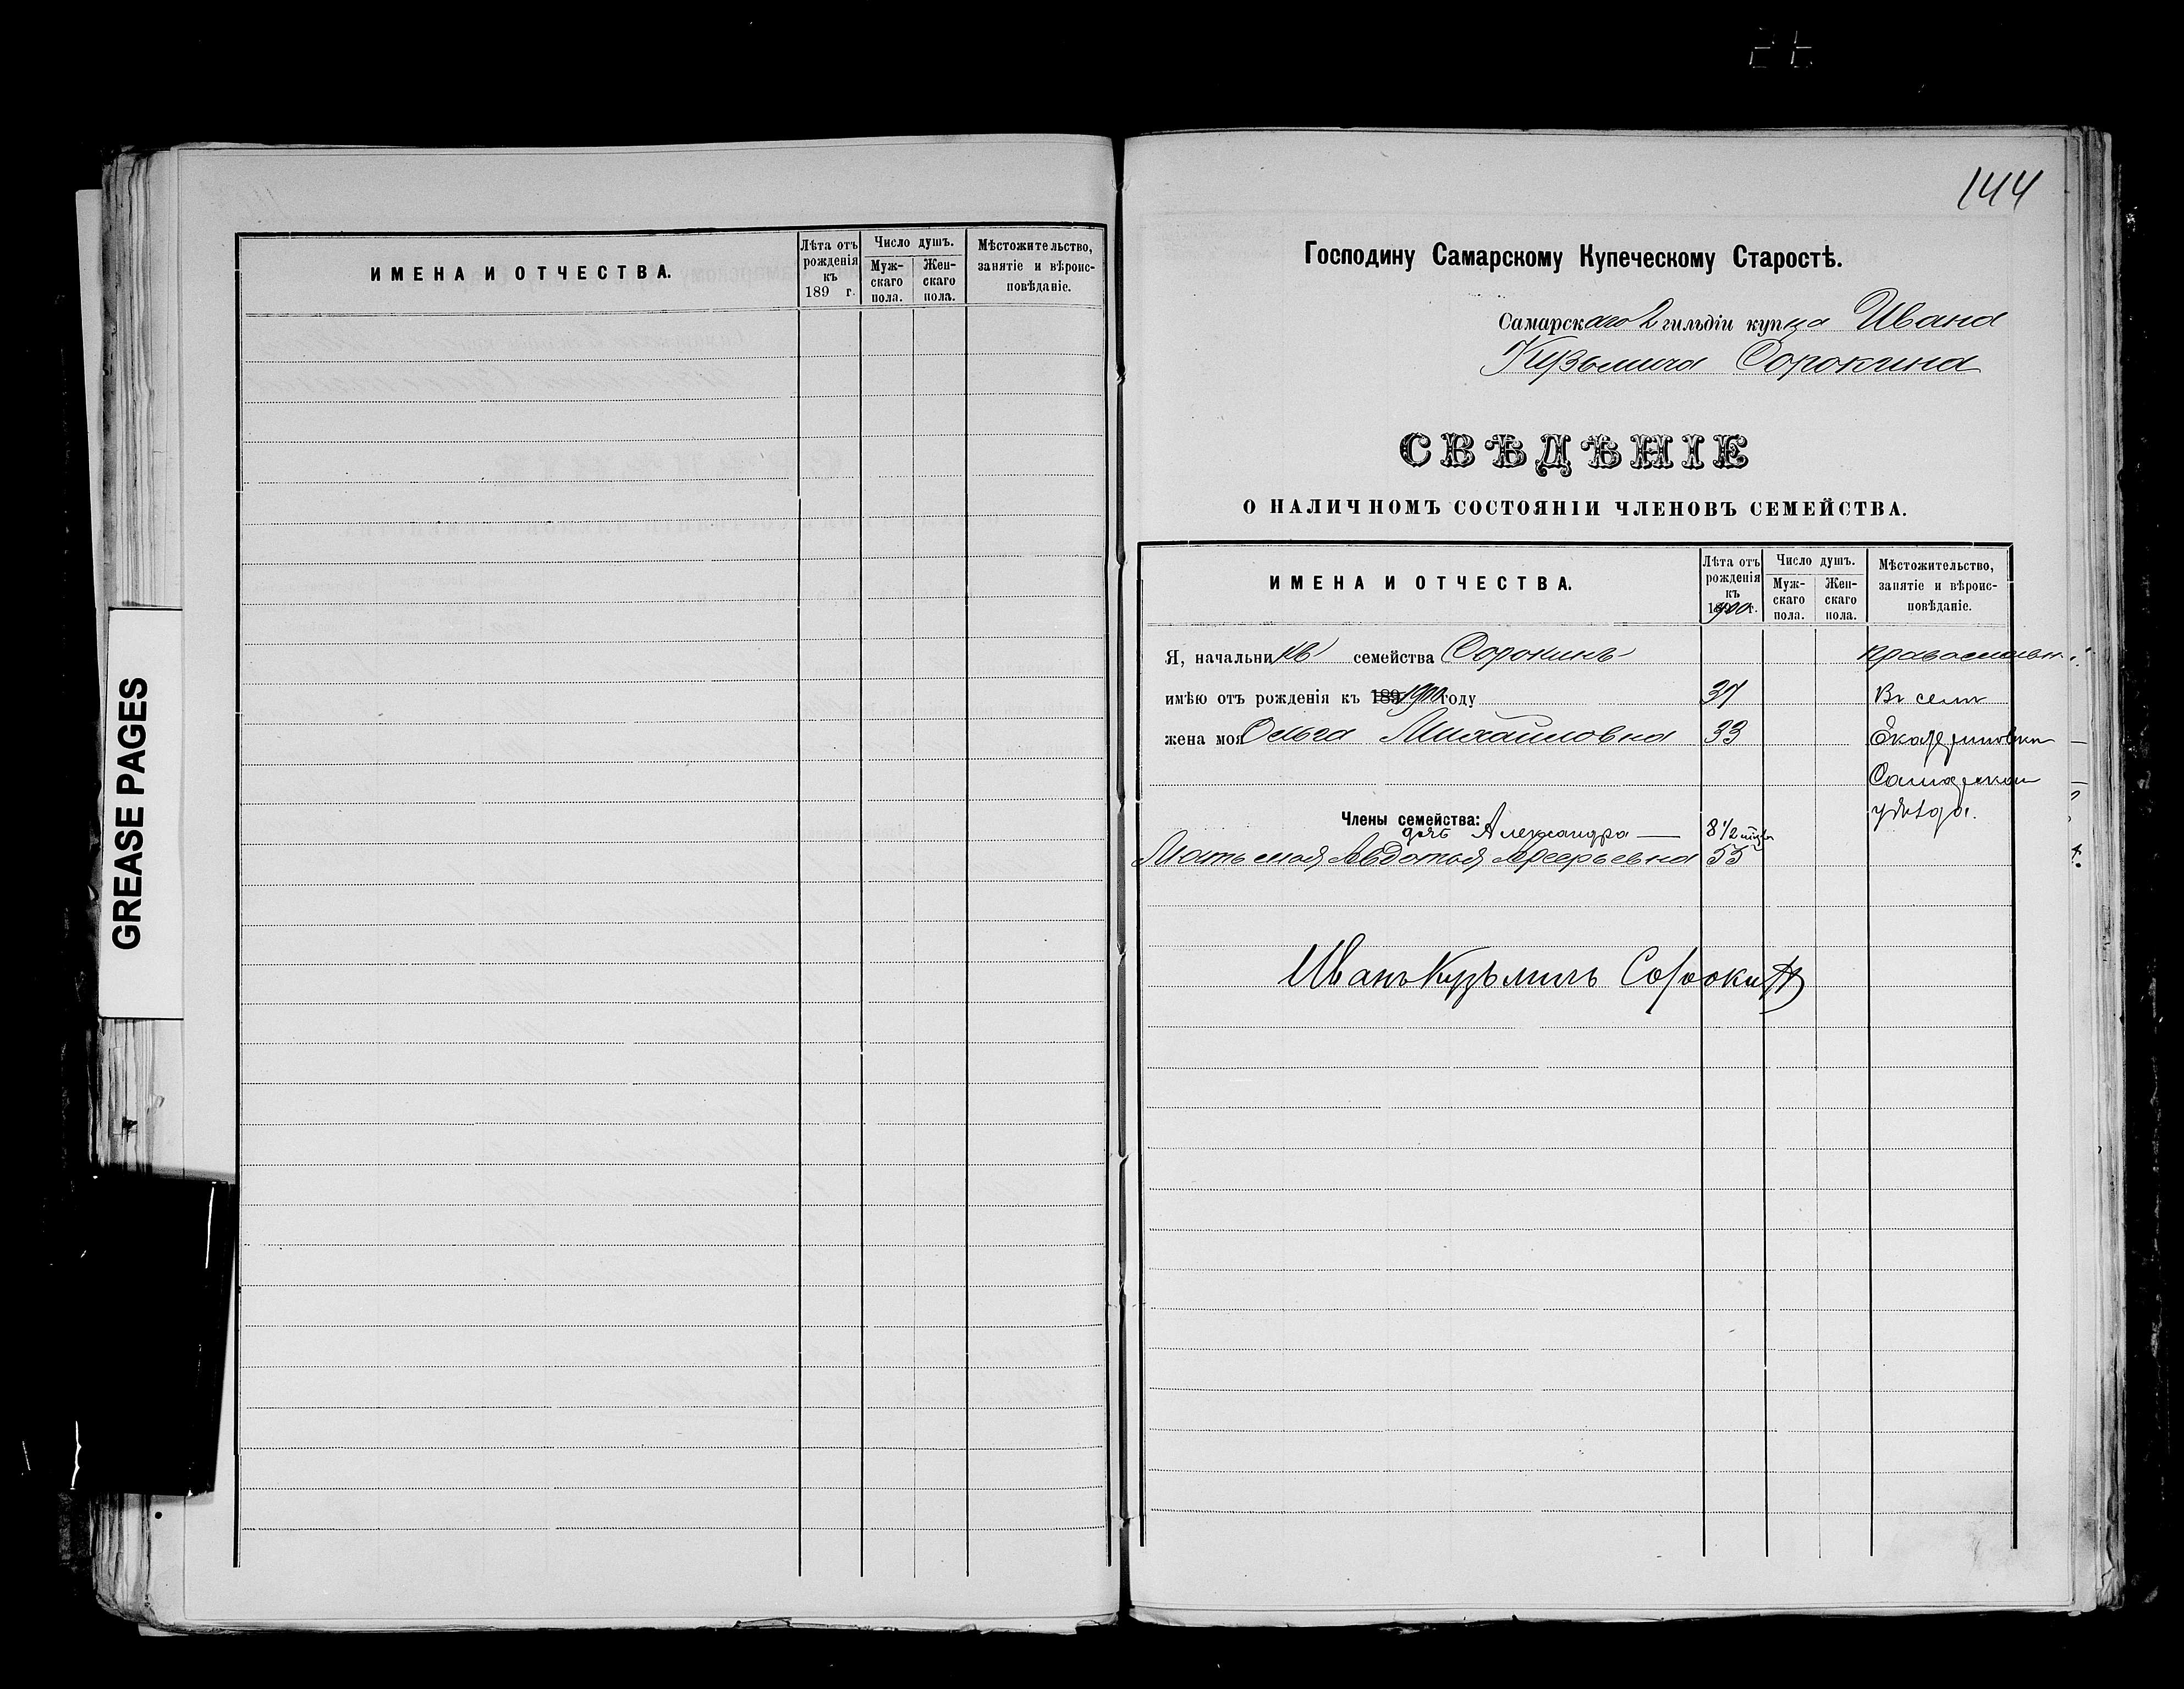 GREASE PAGES
ИМЕНА И ОТЧЕСТВА.
Лѣта отъ рожденія къ 189 г.
Число душъ.
Муж-скаго пола.
Жен-скаго пола.
Мѣстожительство, занятіе и вѣроис-повѣданіе.
144
Господину Самарскому Купеческому Старостѣ.
Самарскаго 2 гильдіи купца Ивана
Кузьмича Сорокина
СВѢДѢНІЕ
О НАЛИЧНОМЪ СОСТОЯНІИ ЧЛЕНОВЪ СЕМЕЙСТВА.
ИМЕНА И ОТЧЕСТВА.
Лѣта отъ рожденія къ 1900 г.
Число душъ.
Муж-скаго пола.
Жен-скаго пола.
Мѣстожительство, занятіе и вѣроис-повѣданіе.
Я, начальникъ семейства Сорокинъ православн.
имѣю отъ рожденія къ 189 1900 году 37 Въ селѣ
жена моя Ольга Михайловна 33 Екатериновки
Самарскаго
уѣзда.
Члены семейства:
дочь Александра — 8 1/2
Мать моя Авдотья 55
Иванъ Кузьмичъ Сорокинъ